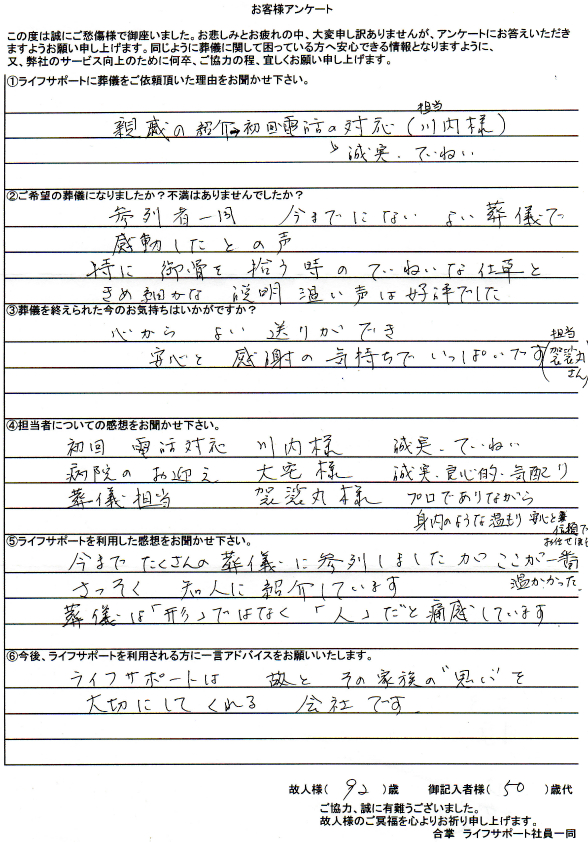 お客様アンケート
この度は誠にご愁傷様で御座いました。お悲しみとお疲れの中、大変申し訳ありませんが、アンケートにお答えいただき
ますようお願い申し上げます。同じように葬儀に関して困っている方へ安心できる情報となりますように、
又、弊社のサービス向上のために何卒、ご協力の程、宜しくお願い申し上げます。
①ライフサポートに葬儀をご依頼頂いた理由をお聞かせ下さい。
担当
親戚の紹介→初回電話の対応(川内様)
↘誠実、ていねい
②ご希望の葬儀になりましたか?不満はありませんでしたか?
参列者一同 今までにない よい葬儀で
感動したとの声
特に 御骨を 拾う時の ていねいな仕草と
きめ細かな 説明 温い声は好評でした
③葬儀を終えられた今のお気持ちはいかがですか?
心から よい 送りができ
安心と 感謝の気持ちで いっぱいです(担当 袈裟丸さん)
④担当者についての感想をお聞かせ下さい。
初回 電話対応 川内様 誠実、ていねい
病院の お迎え 大宅様 誠実、良心的、気配り
葬儀担当 袈裟丸様 プロでありながら
身内のような温まり 安心と信頼で
お任せ
⑤ライフサポートを利用した感想をお聞かせ下さい。
今まで たくさんの葬儀に参列しましたが ここが一番
温かかった
さっそく 知人に紹介しています
葬儀は「形」ではなく「人」だと痛感しています
⑥今後、ライフサポートを利用される方に一言アドバイスをお願いいたします。
ライフサポートは 故と その家族の"思い"を
大切にしてくれる 会社です
故人様( 92 )歳 御記入者様( 50 )歳代
ご協力、誠に有難うございました。
故人様のご冥福を心よりお祈り申し上げます。
合掌 ライフサポート社員一同